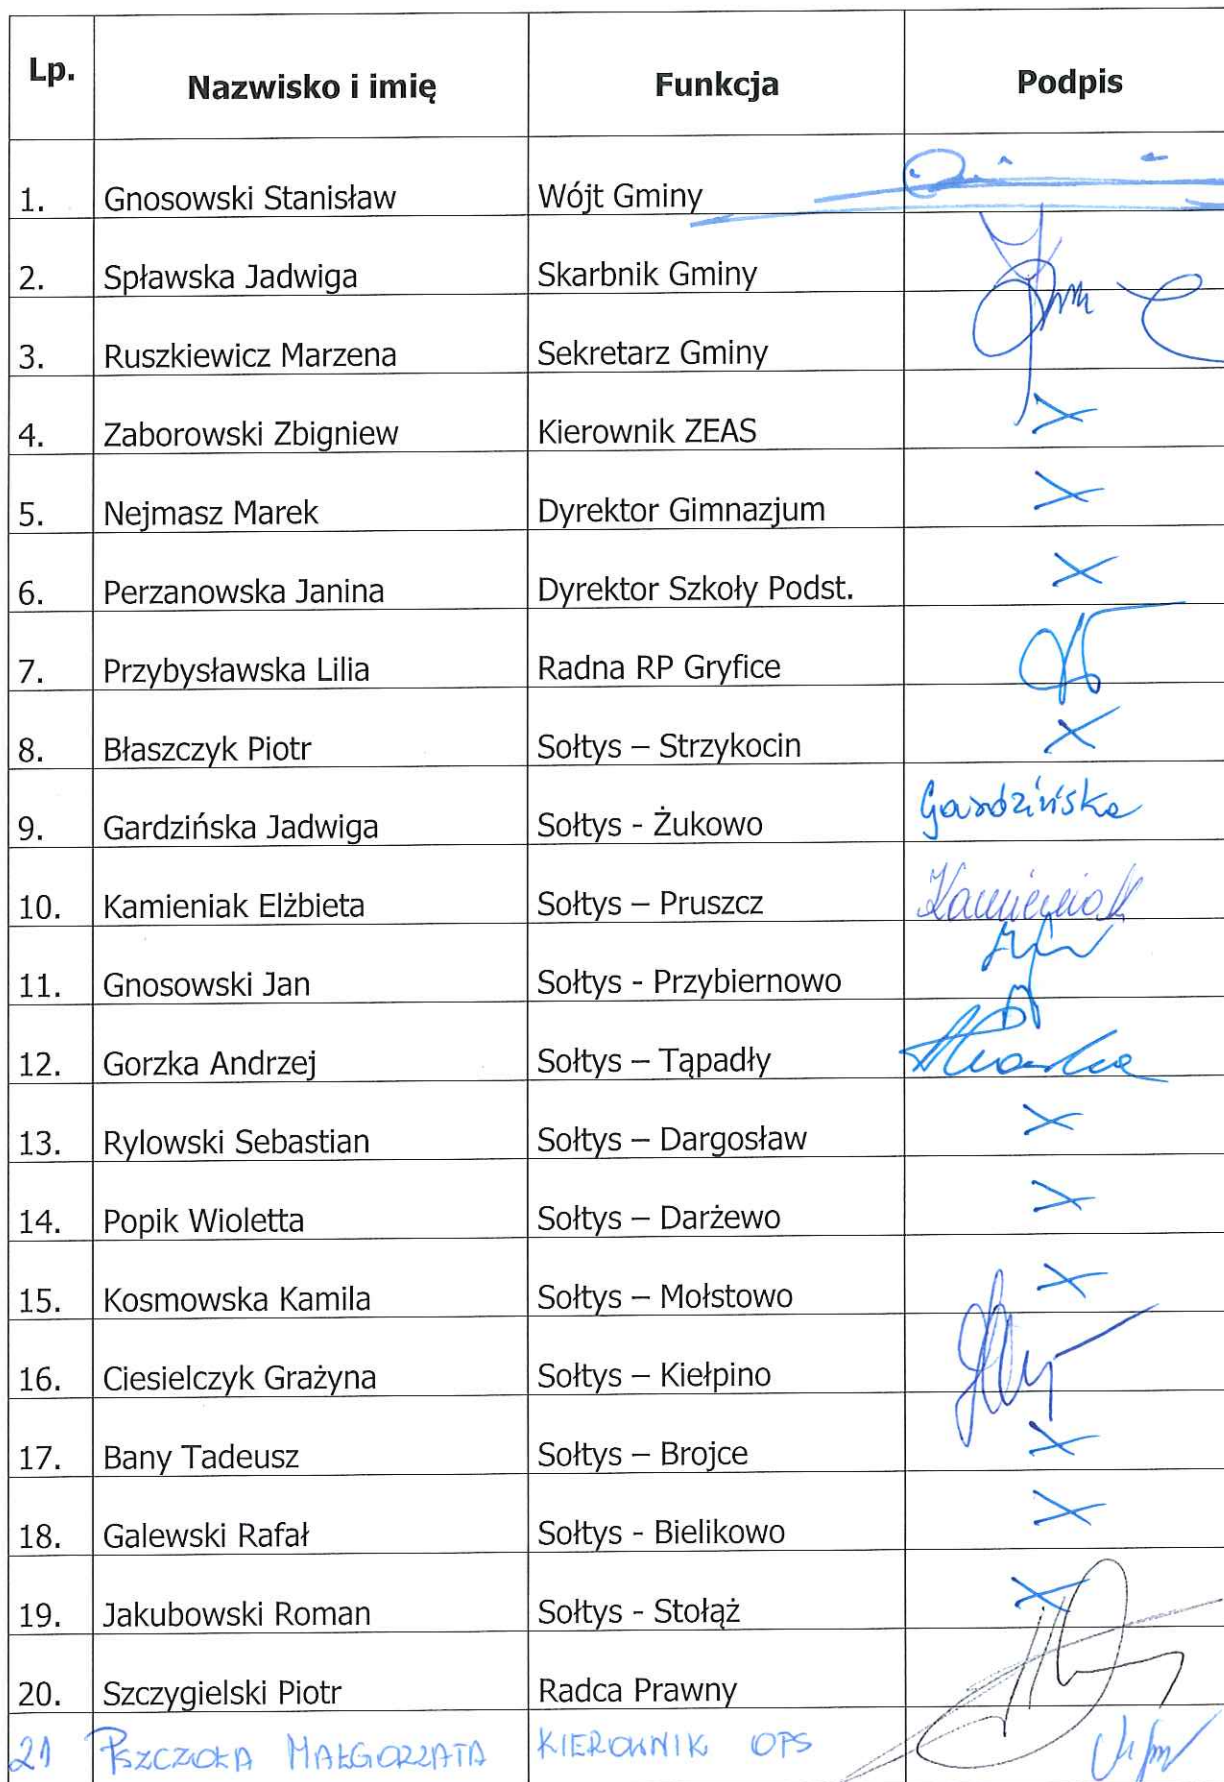 Lp. Nazwisko i imię Funkcja Podpis
1. Gnosowski Stanisław Wójt Gminy
2. Spławska Jadwiga Skarbnik Gminy
3. Ruszkiewicz Marzena Sekretarz Gminy
4. Zaborowski Zbigniew Kierownik ZEAS X
5. Nejmasz Marek Dyrektor Gimnazjum X
6. Perzanowska Janina Dyrektor Szkoły Podst. X
7. Przybysławska Lilia Radna RP Gryfice
8. Błaszczyk Piotr Sołtys – Strzykocin X
9. Gardzińska Jadwiga Sołtys - Żukowo Gardzińska
10. Kamieniak Elżbieta Sołtys – Pruszcz Kamieniak
11. Gnosowski Jan Sołtys - Przybiernowo
12. Gorzka Andrzej Sołtys – Tąpadły
13. Rylowski Sebastian Sołtys – Dargosław X
14. Popik Wioletta Sołtys – Darżewo X
15. Kosmowska Kamila Sołtys – Mołstowo X
16. Ciesielczyk Grażyna Sołtys – Kiełpino
17. Bany Tadeusz Sołtys – Brojce X
18. Galewski Rafał Sołtys - Bielikowo X
19. Jakubowski Roman Sołtys - Stołąż X
20. Szczygielski Piotr Radca Prawny
21 PSZCZOŁA MAŁGORZATA KIEROWNIK OPS